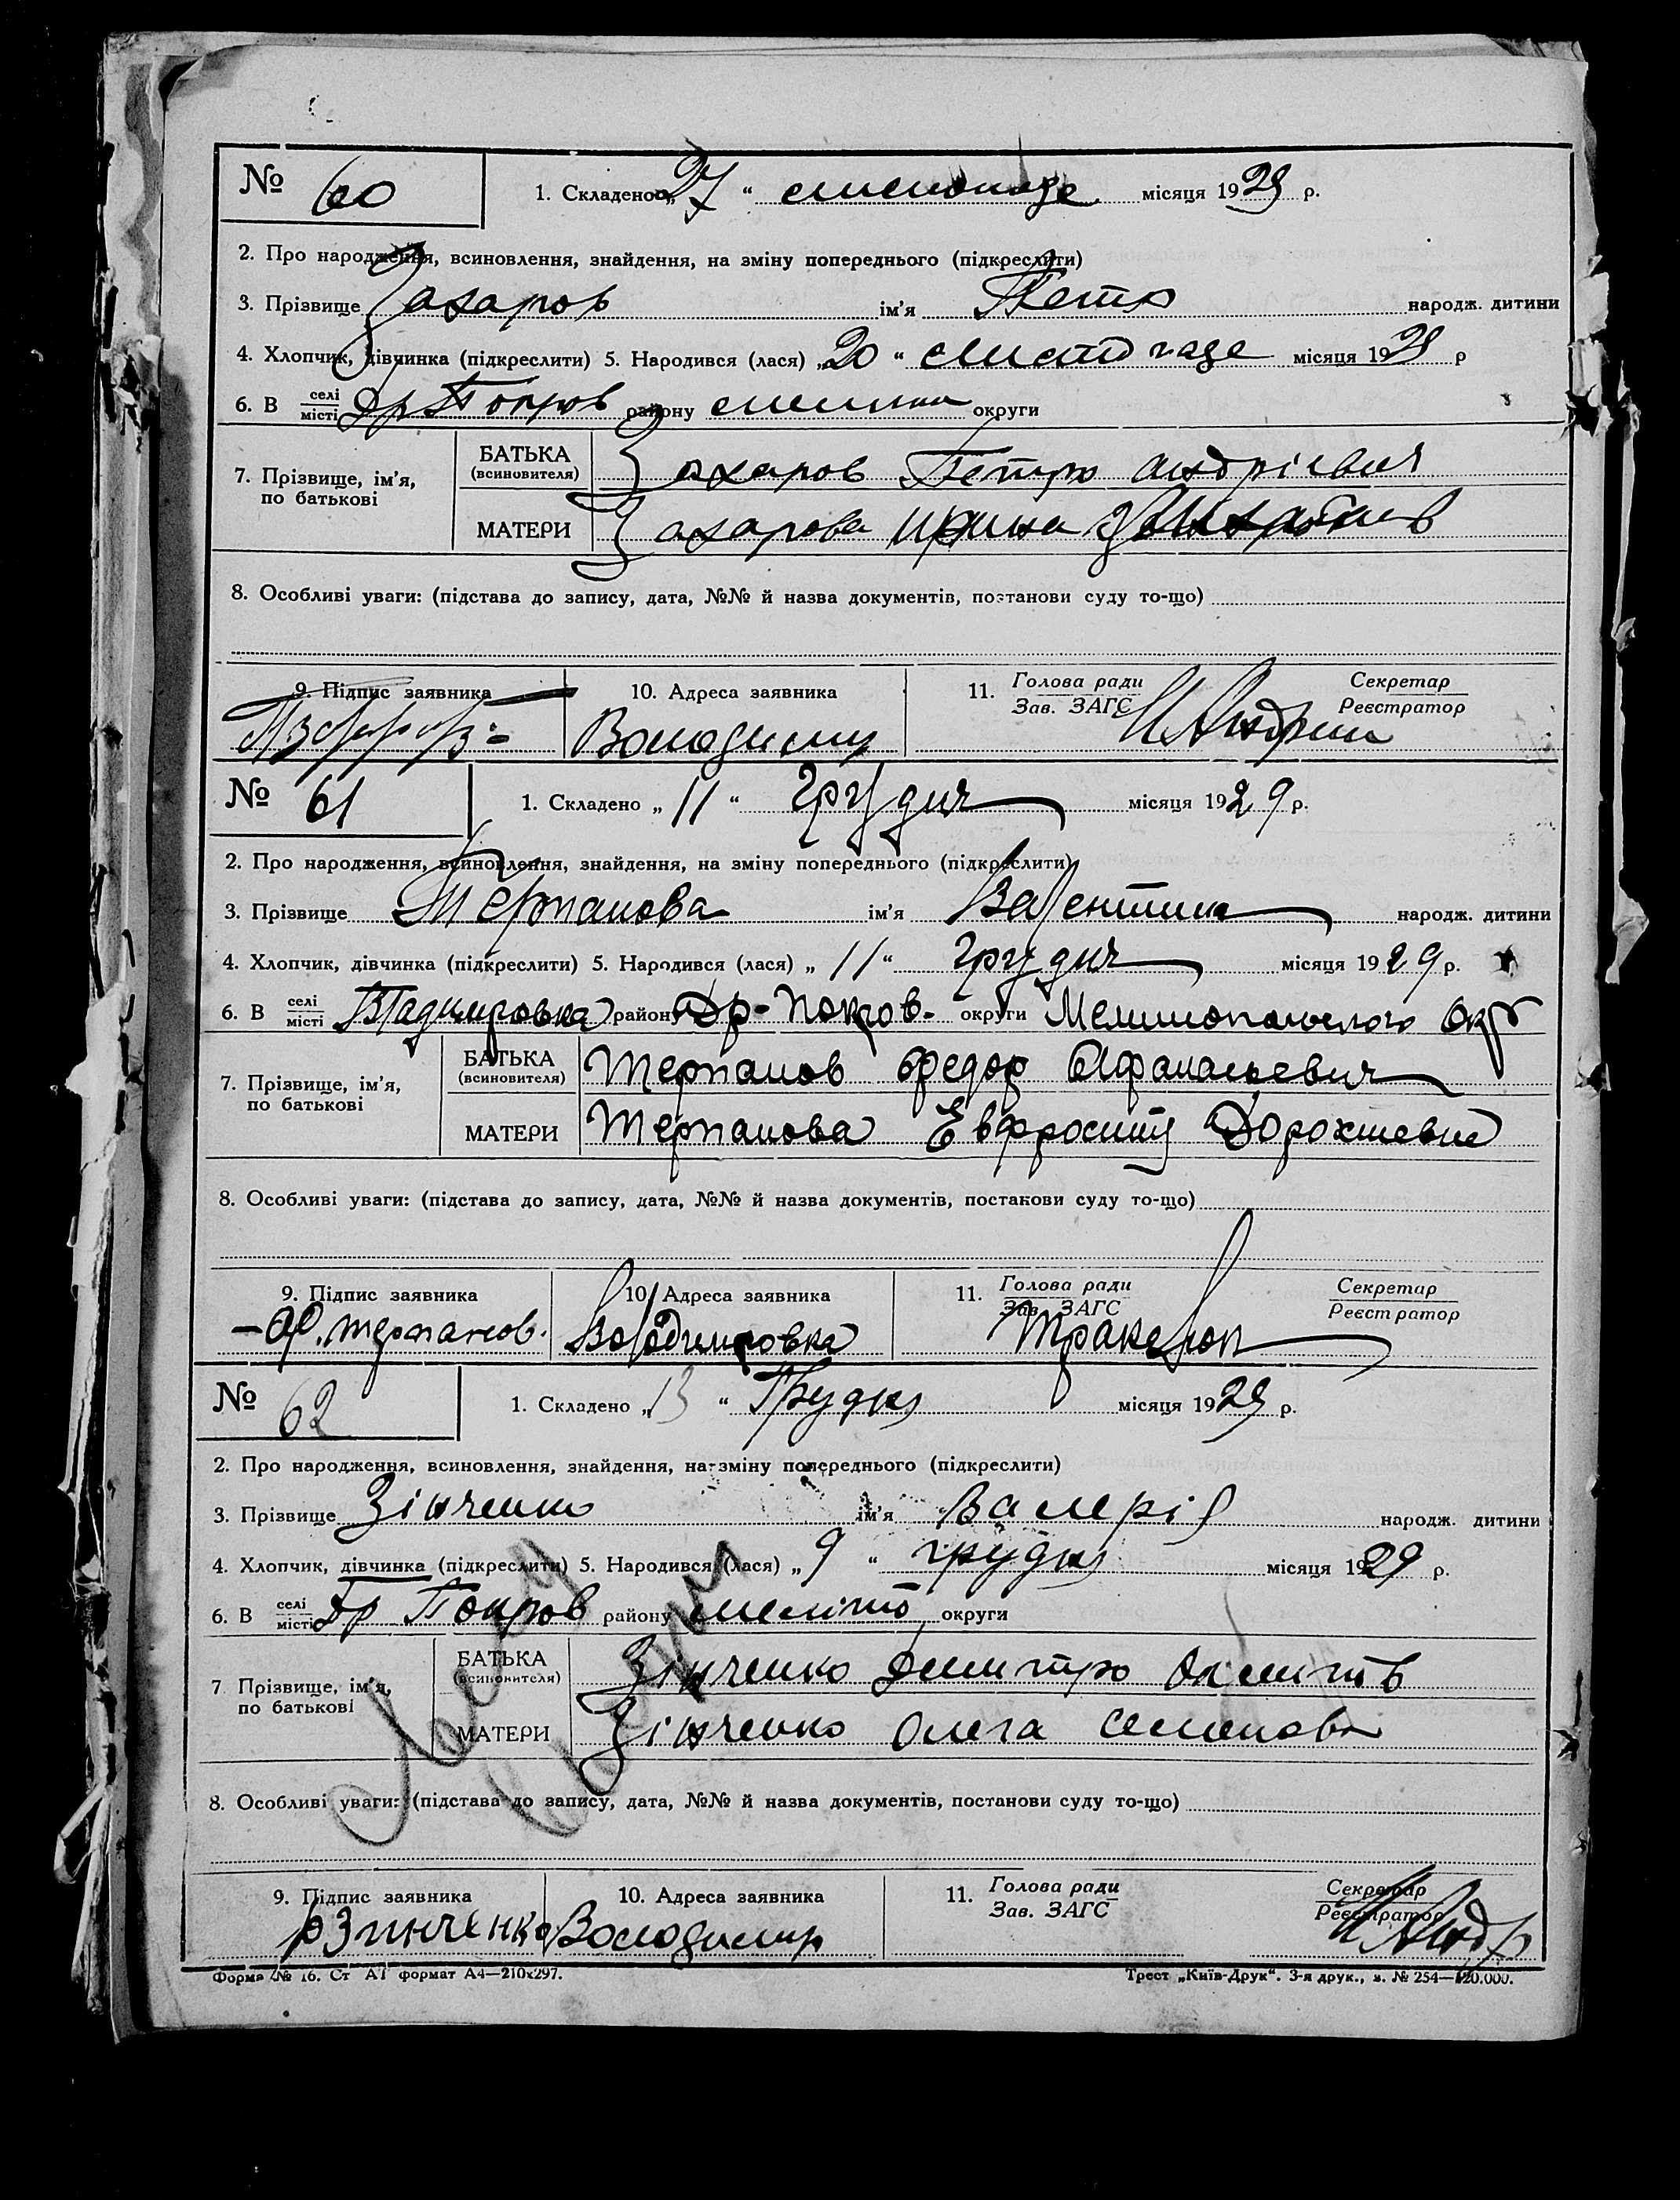 № 60 1. Складено „27“ листопаде місяця 1929 р.
2. Про народження, всиновлення, знайдення, на зміну попереднього (підкреслити)
3. Прізвище Захаров ім'я Петро народж. дитини
4. Хлопчик, дівчинка (підкреслити) 5. Народився (лася) „20“ листопаде місяця 1929 р
6. В селі місті Др Покров району округи
7. Прізвище, ім'я, по батькові
БАТЬКА (всиновителя) Захаров Петро Андрієвич
МАТЕРИ Захарова Ирина
8. Особливі уваги: (підстава до запису, дата, №№ й назва документів, постанови суду то-що)
9. Підпис заявника 10. Адреса заявника 11. Голова ради Зав. ЗАГС Секретар Реєстратор
Володимир
№ 61 1. Складено „11“ Грудня місяця 1929 р.
2. Про народження, всиновлення, знайдення, на зміну попереднього (підкреслити)
3. Прізвище Терпанова ім'я Валентина народж. дитини
4. Хлопчик, дівчинка (підкреслити) 5. Народився (лася) „11“ Грудня місяця 1929 р.
6. В селі місті Владимровка району Др-Покров. округи Мелитопольского Окр
7. Прізвище, ім'я, по батькові
БАТЬКА (всиновителя) Терпанов Федор Афанасьевич
МАТЕРИ Терпанова Евфросиния
8. Особливі уваги: (підстава до запису, дата, №№ й назва документів, постанови суду то-що)
9. Підпис заявника 10. Адреса заявника 11. Голова ради Зав. ЗАГС Секретар Реєстратор
Ф. Терпанов. Володимровка
№ 62 1. Складено „13“ Грудня місяця 1929 р.
2. Про народження, всиновлення, знайдення, на зміну попереднього (підкреслити)
3. Прізвище Зінченко ім'я Валерія народж. дитини
4. Хлопчик, дівчинка (підкреслити) 5. Народився (лася) „9“ грудня місяця 1929 р.
6. В селі місті Др Покров району Меліто округи
7 Прізвище, ім'я, по батькові
БАТЬКА (всиновителя) Зінченко Дмитро
МАТЕРИ Зінченко Олега Семенова
8. Особливі уваги: (підстава до запису, дата, №№ й назва документів, постанови суду то-що)
9. Підпис заявника 10. Адреса заявника 11. Голова ради Зав. ЗАГС Секретар Реєстратор
Зинченко Володимир
Форма № 16. Ст АТ формат А4—210х297. Трест „Київ-Друк“. 3-я друк., з. № 254—120.000.